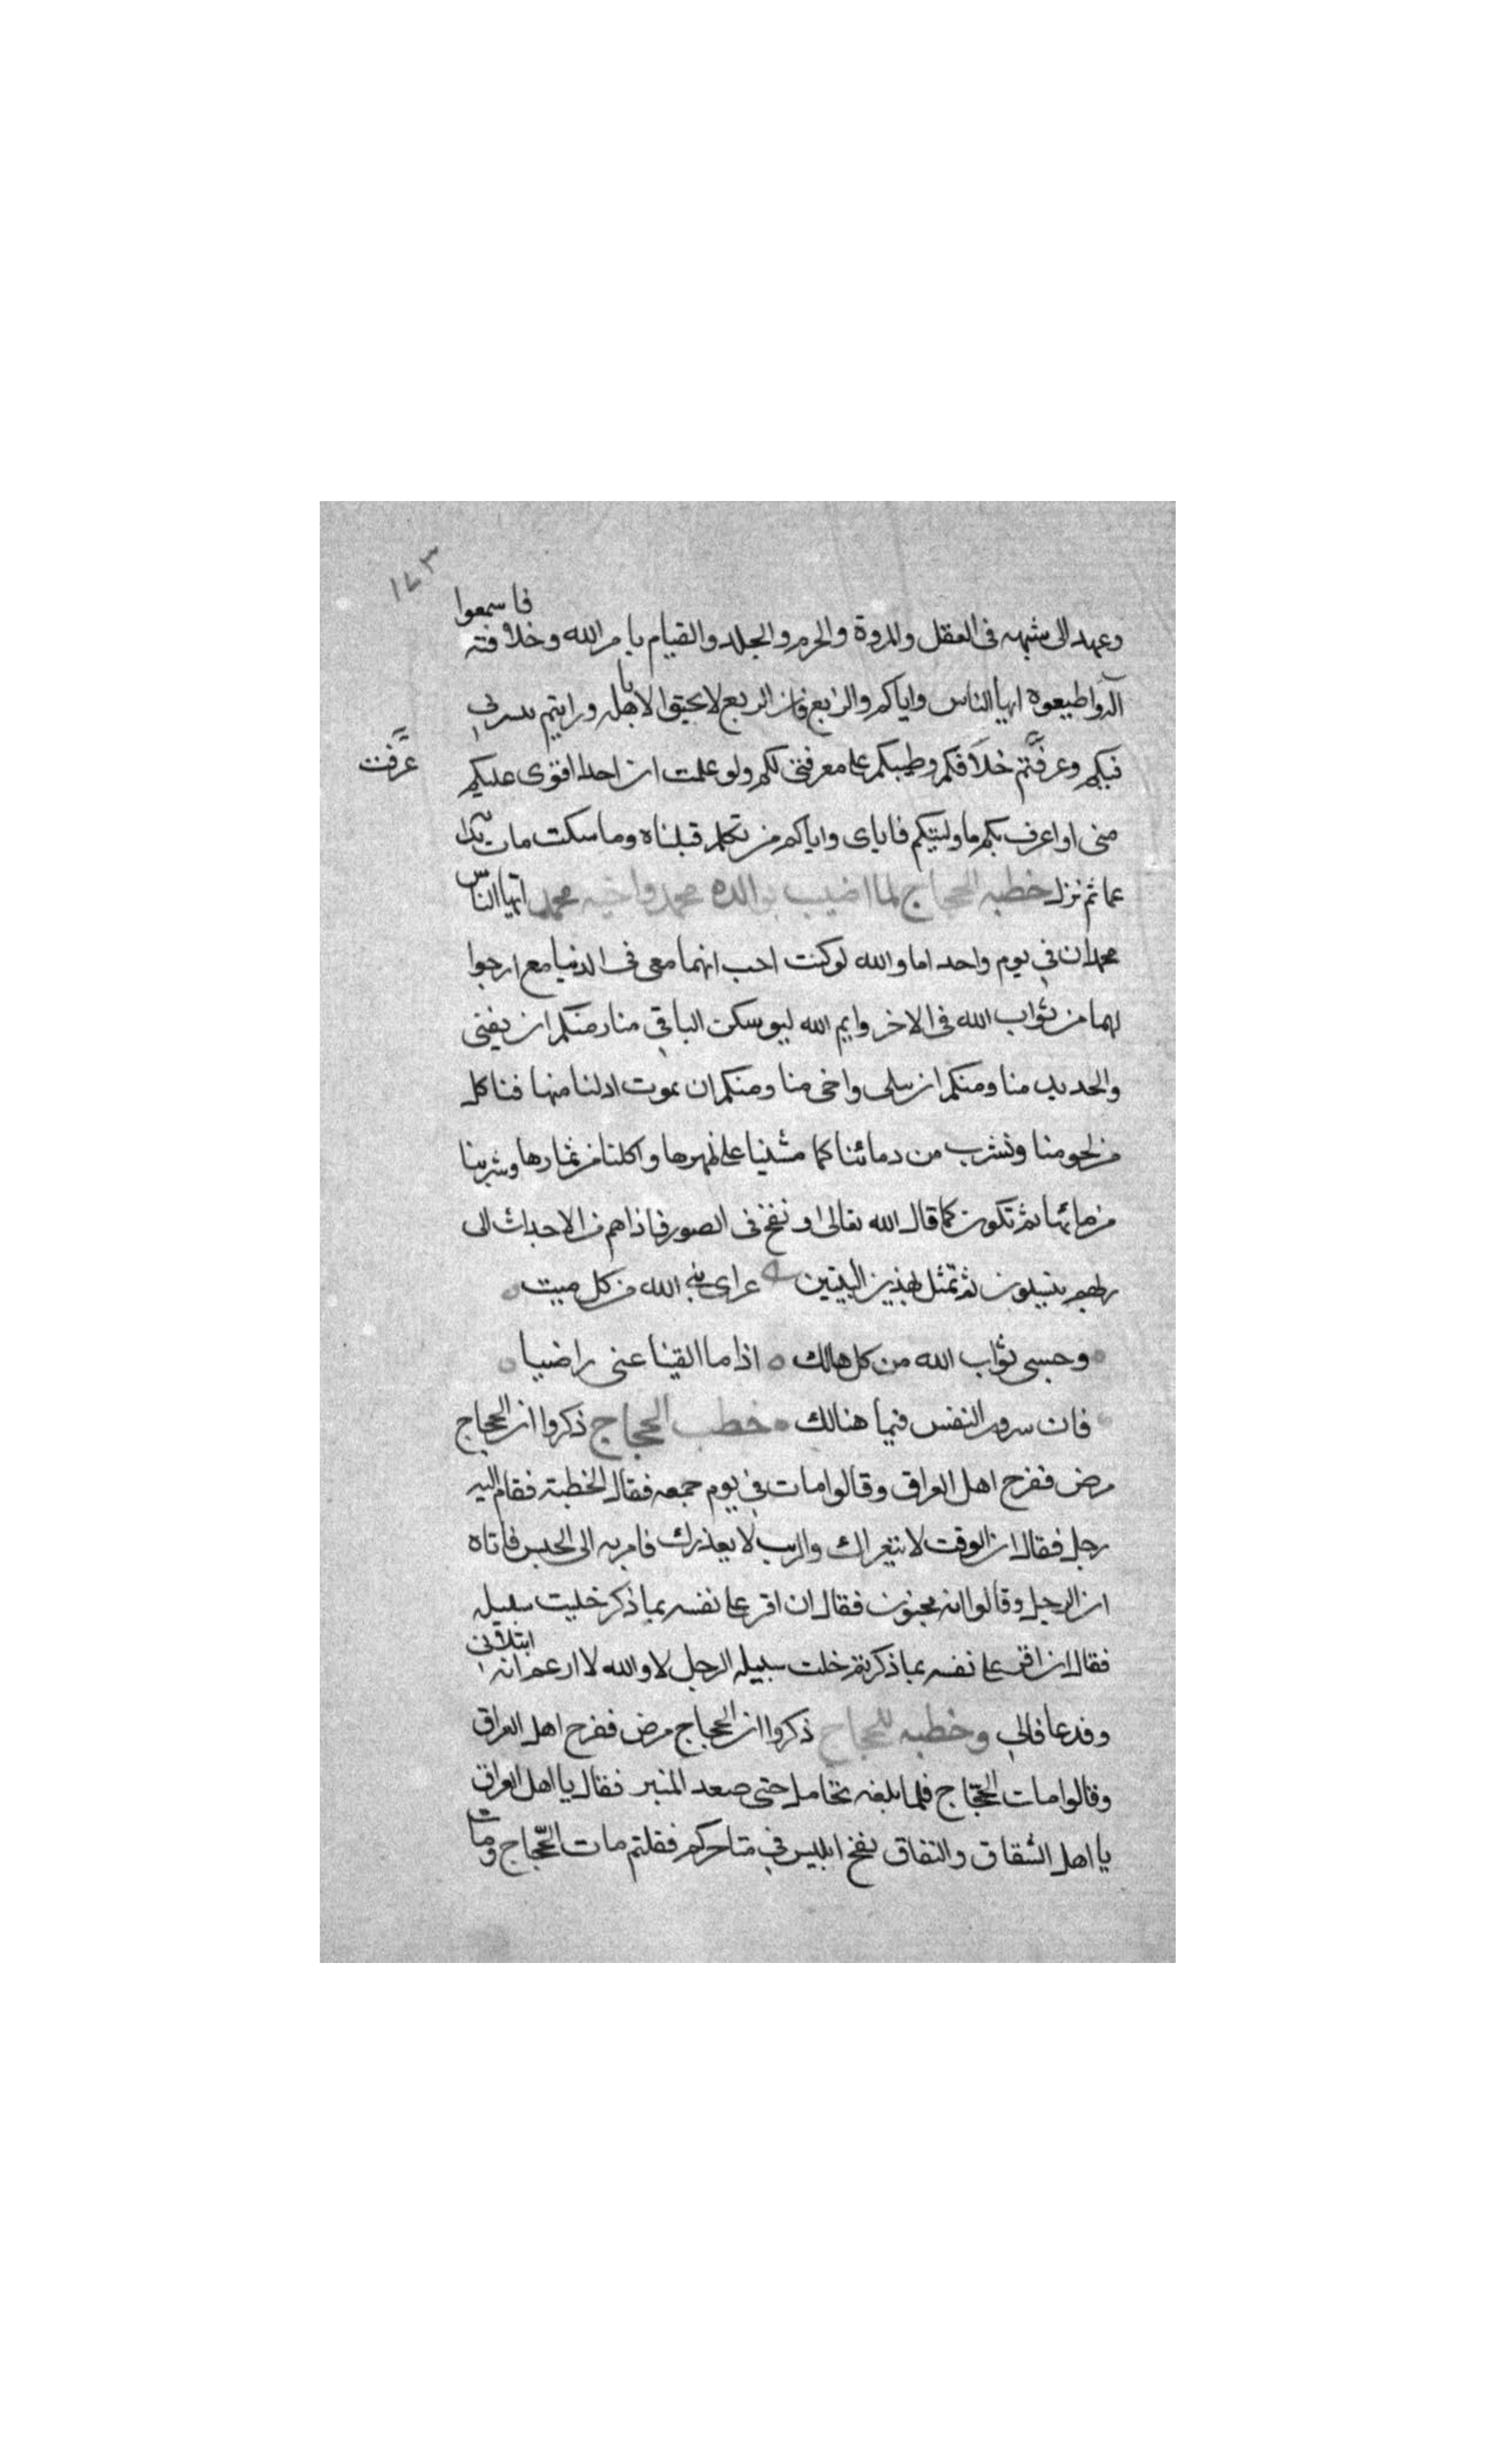 ١٧٣
فاسمعوا
وعهد الى شبهه فى العقل والمروة والحزم والجلد والقيام بامر الله وخلافته
له واطيعوه ايها الناس واياكم والزيغ فان الزيغ لا يحيق الا باهله ورايتم سيرتى
فيكم وعرفتم خلافكم وطيبكم على معرفتى لكم ولو علمت ان احدا اقوى عليكم
عرفت
منى او اعرف بكم ما وليتكم فاياى واياكم من تكلم قبلناه وما سكت مات بدا
غما ثم نزل خطبه الحجاج لما اصيب بوالده محمد واخيه محمد ايها الناس
محمدان فى يوم واحد اما والله لو كنت احب انهما معى فى الدنيا مع ارجوا
لهما من ثواب الله فى الاخر وايم الله ليوسكن الباقى منا ومنكم ان يفنى
والحديد منا ومنكم ان يبلى واخى منا ومنكم ان يموت ادلنا منها فناكل
من لحومنا وتشرب من دمائنا كما مشينا على ظهرها واكلنا من ثمارها وشربنا
من مائها ثم تكون كما قال الله تعالى ونفخ فى الصور فاذا هم من الاجداث الى
ربهم ينسلون ثم تمثل بهذين البيتين عزاى نبى الله من كل ميت
وحسبى ثواب الله من كل هالك اذا ما القينا عنى راضيا
فان سرور النفس فيما هنالك خطب الحجاج ذكروا ان الحجاج
مرض ففرح اهل العراق وقالوا مات فى يوم جمعه فقال الخطبة فقام اليه
رجل فقال ان الوقت لا ينتظراك والرب لا يعذرك فامر به الى الحبس فاتاه
ان الرجل وقالوا انه مجنون فقال ان اقر على نفسه بما ذكر خليت سبيله
فقال ان اقر على نفسه بما ذكرتم خلت سبيله الرجل لا والله لا ازعم انه ابتلانى
وقد عافانى وخطبه للحجاج ذكروا ان الحجاج مرض ففرح اهل العراق
وقالوا مات الحجّاج فلما بلغه تحامل حتى صعد المنبر فقال يا اهل العراق
يا اهل الشقاق والنفاق نفخ ابليس فى مناخركم فقلتم مات الحجّاج ومات